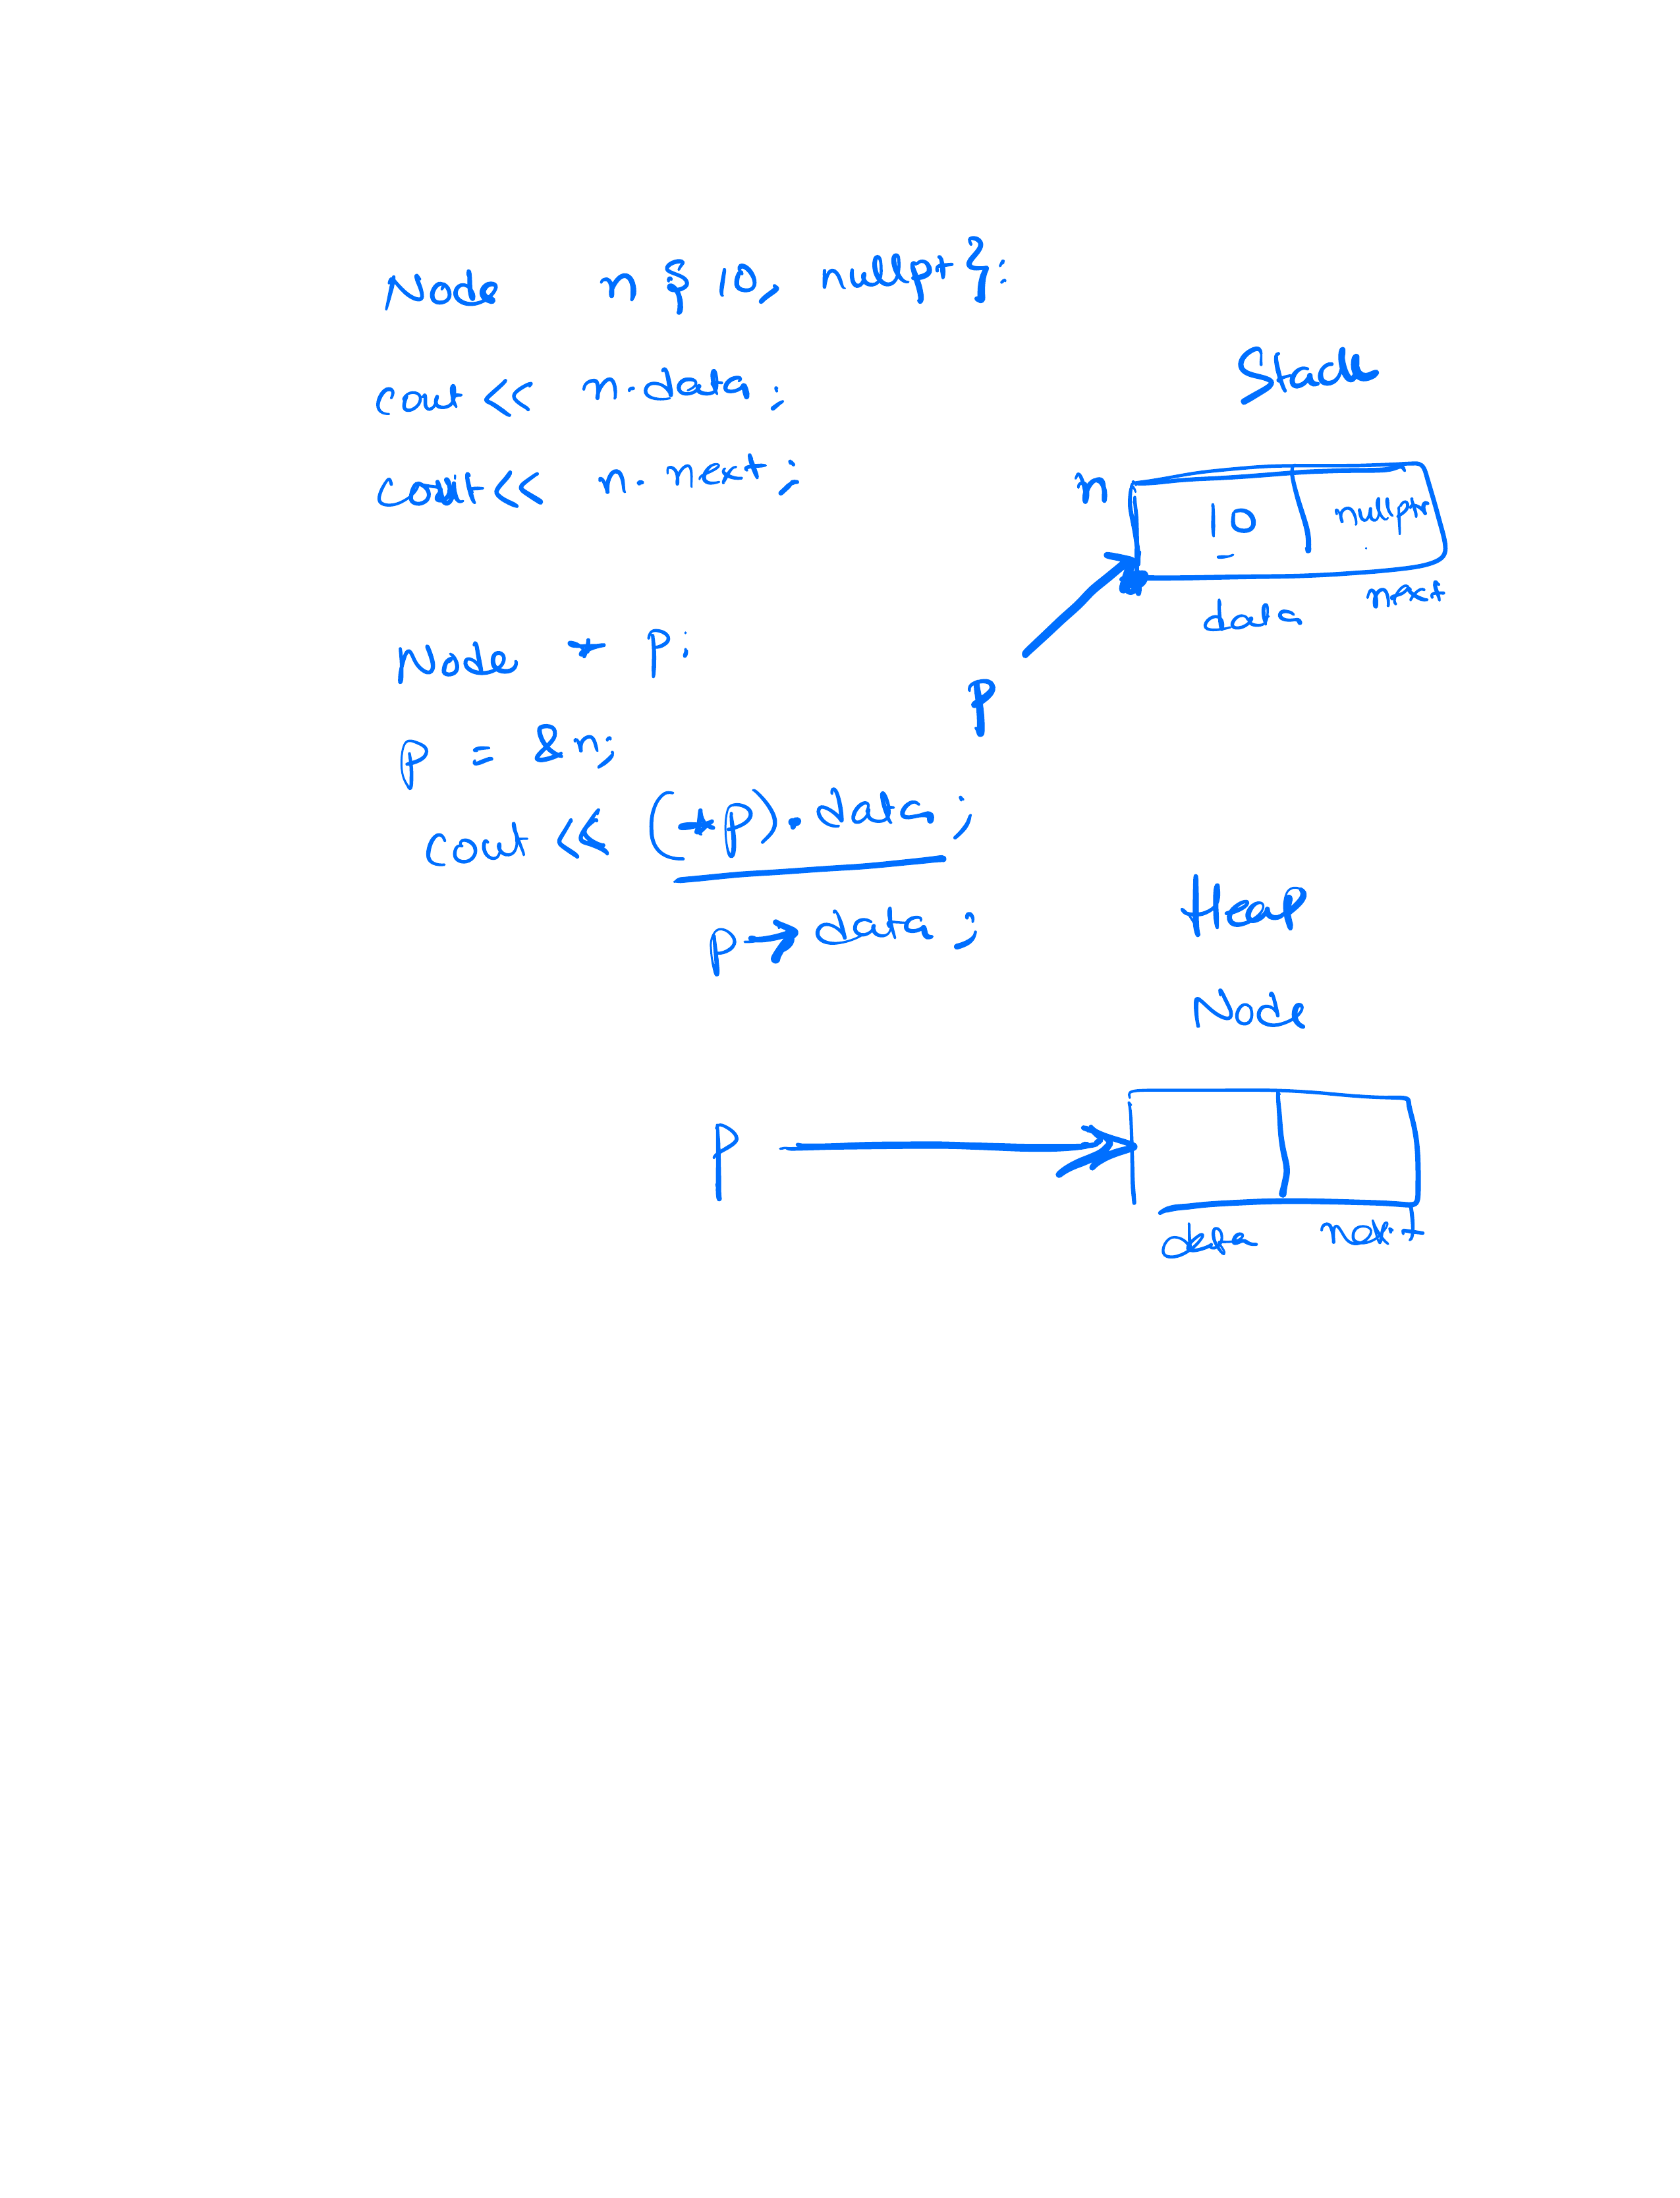 Node n { 10, nullpt };
cout << n.data ;
cout << n. next ;
Stack
n 10 nullptr
data next
Node * p;
p = &n;
p
cout << (*p).data ;
p → data ;
Heap
Node
p
data next